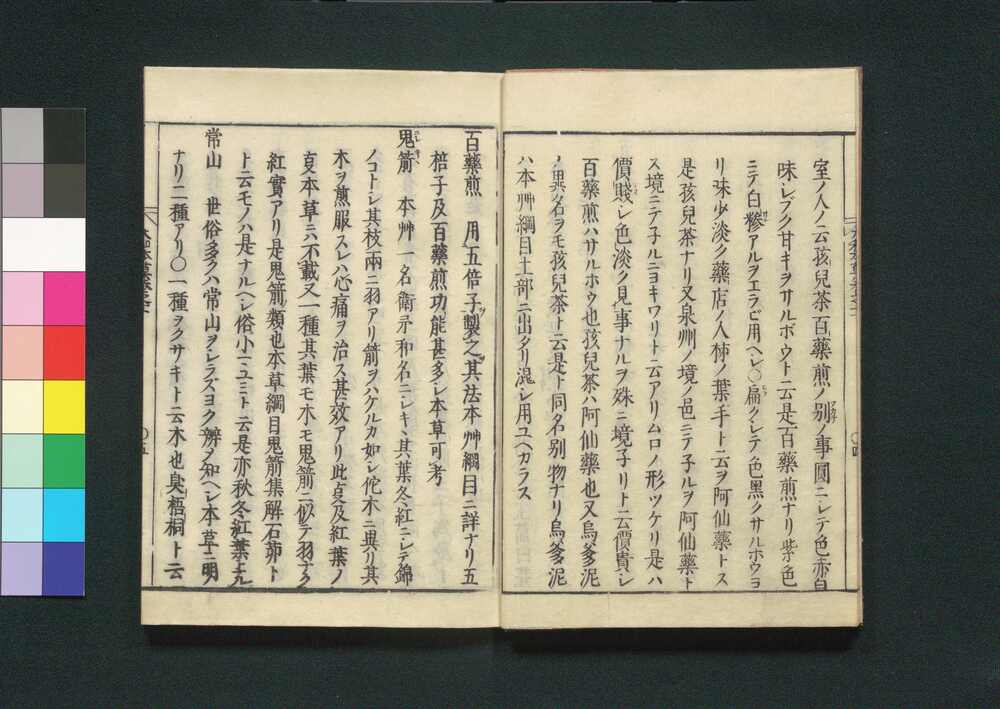 室ノ人ノ云孩兒茶百藥煎ノ別ノ事圓ニシテ色赤白
味シブク甘キヲサルボウト云是百藥煎ナリ紫色
ニテ白糝アルヲエラビ用ヘシ〇扁クシテ色黑クサルホウヨ
リ味少淡ク藥店ノ人柹ノ葉手ト云ヲ阿仙藥トス
是孩兒茶ナリ又泉州ノ境ノ邑ニテ子ルヲ阿仙藥ト
ス境ニテ子ルニヨキワリト云アリムロノ形ツケリ是ハ
價賤シ色淡ク見事ナルヲ殊ニ境子リト云價貴シ
百藥煎ハサルホウ也孩兒茶ハ阿仙藥也又烏爹泥
ノ異名ヲモ孩兒茶ト云是ト同名別物ナリ烏爹泥
ハ本艸綱目土部ニ出タリ混シ用ユヘカラス
百藥煎 用五倍子製之其法本艸綱目ニ詳ナリ五
棓子及百藥煎功能甚多シ本草可考
鬼箭 本艸一名衛矛和名ニシキヽ其葉冬紅ニシテ錦
ノコトシ其枝兩ニ羽アリ箭ヲハケルカ如シ佗木ニ異リ其
木ヲ煎服スレハ心痛ヲ治ス甚效アリ此叓及紅葉ノ
叓本草ニハ不載又一種其葉モ木モ鬼箭ニ似テ羽ナク
紅實アリ是鬼箭ノ類也本草綱目鬼箭集解石茆ト
ト云モノハ是ナルヘシ俗小マユミト云是亦秋冬紅葉ス
常山 世俗多クハ常山ヲシラズヨク辨ヘ知ヘシ本草ニ明
ナリ二種アリ〇一種ヲクサキト云木也臭梧桐ト云
〇四
〇五